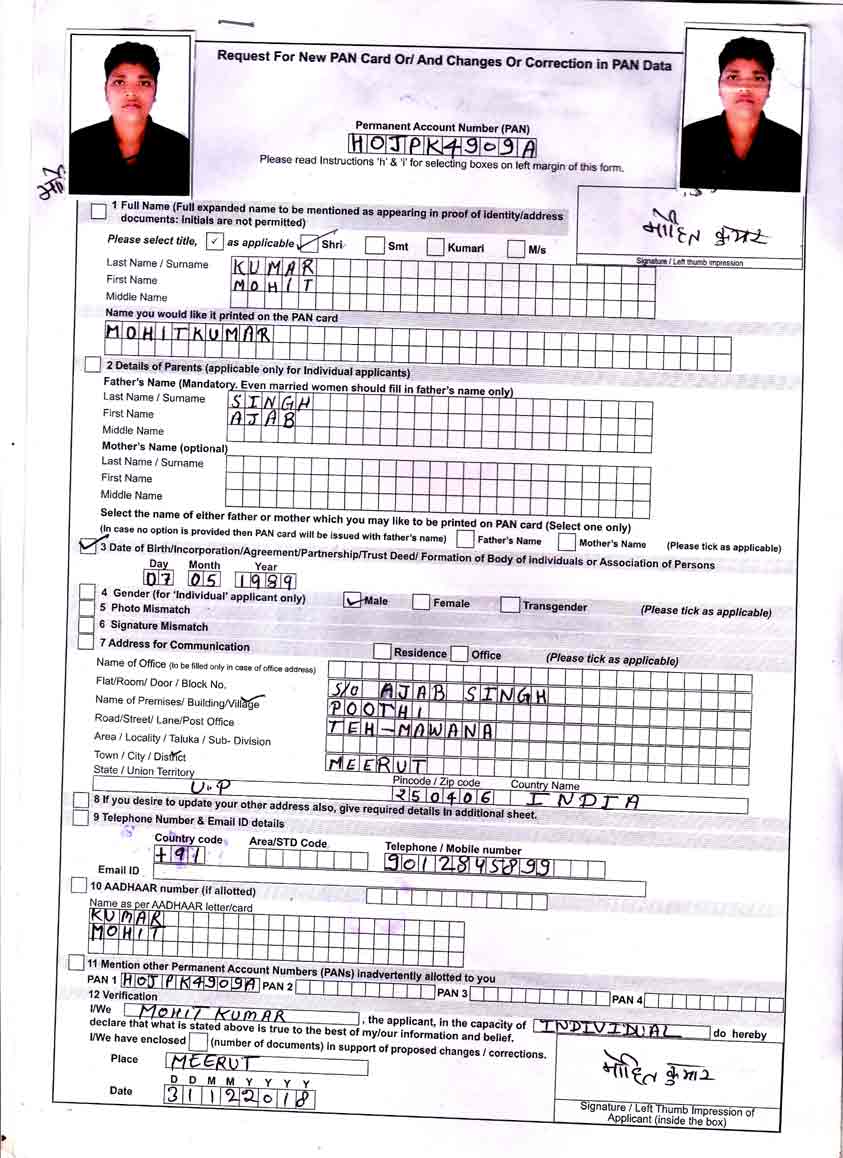 Request For New PAN Card Or/ And Changes Or Correction in PAN Data
Permanent Account Number (PAN)
HOJPK4909A
Please read Instructions 'h' & 'i' for selecting boxes on left margin of this form.
1 Full Name (Full expanded name to be mentioned as appearing in proof of identity/address documents: initials are not permitted)
मोहित कुमार
Signature / Left thumb impression
Please select title, ✓ as applicable ✓ Shri Smt Kumari M/s
Last Name / Surname KUMAR
First Name MOHIT
Middle Name
Name you would like it printed on the PAN card
MOHITKUMAR
2 Details of Parents (applicable only for Individual applicants)
Father's Name (Mandatory. Even married women should fill in father's name only)
Last Name / Surname SINGH
First Name AJAB
Middle Name
Mother's Name (optional)
Last Name / Surname
First Name
Middle Name
Select the name of either father or mother which you may like to be printed on PAN card (Select one only)
(In case no option is provided then PAN card will be issued with father's name) Father's Name Mother's Name (Please tick as applicable)
✓ 3 Date of Birth/Incorporation/Agreement/Partnership/Trust Deed/ Formation of Body of individuals or Association of Persons
Day Month Year
07 05 1989
4 Gender (for 'Individual' applicant only) ✓ Male Female Transgender (Please tick as applicable)
5 Photo Mismatch
6 Signature Mismatch
7 Address for Communication Residence Office (Please tick as applicable)
Name of Office (to be filled only in case of office address)
Flat/Room/ Door / Block No. S/O AJAB SINGH
Name of Premises/ Building/Village POOTHI
Road/Street/ Lane/Post Office TEH-MAWANA
Area / Locality / Taluka / Sub- Division
Town / City / District MEERUT
State / Union Territory Pincode / Zip code Country Name
U.P 250406 INDIA
8 If you desire to update your other address also, give required details in additional sheet.
9 Telephone Number & Email ID details
Country code Area/STD Code Telephone / Mobile number
+91 9012845899
Email ID
10 AADHAAR number (if allotted)
Name as per AADHAAR letter/card
KUMAR
MOHIT
11 Mention other Permanent Account Numbers (PANs) inadvertently allotted to you
PAN 1 HOJPK4909A PAN 2 PAN 3 PAN 4
12 Verification
I/We MOHIT KUMAR , the applicant, in the capacity of INDIVIDUAL do hereby
declare that what is stated above is true to the best of my/our information and belief.
I/We have enclosed (number of documents) in support of proposed changes / corrections.
Place MEERUT
D D M M Y Y Y Y
Date 31122018
मोहित कुमार
Signature / Left Thumb Impression of
Applicant (inside the box)